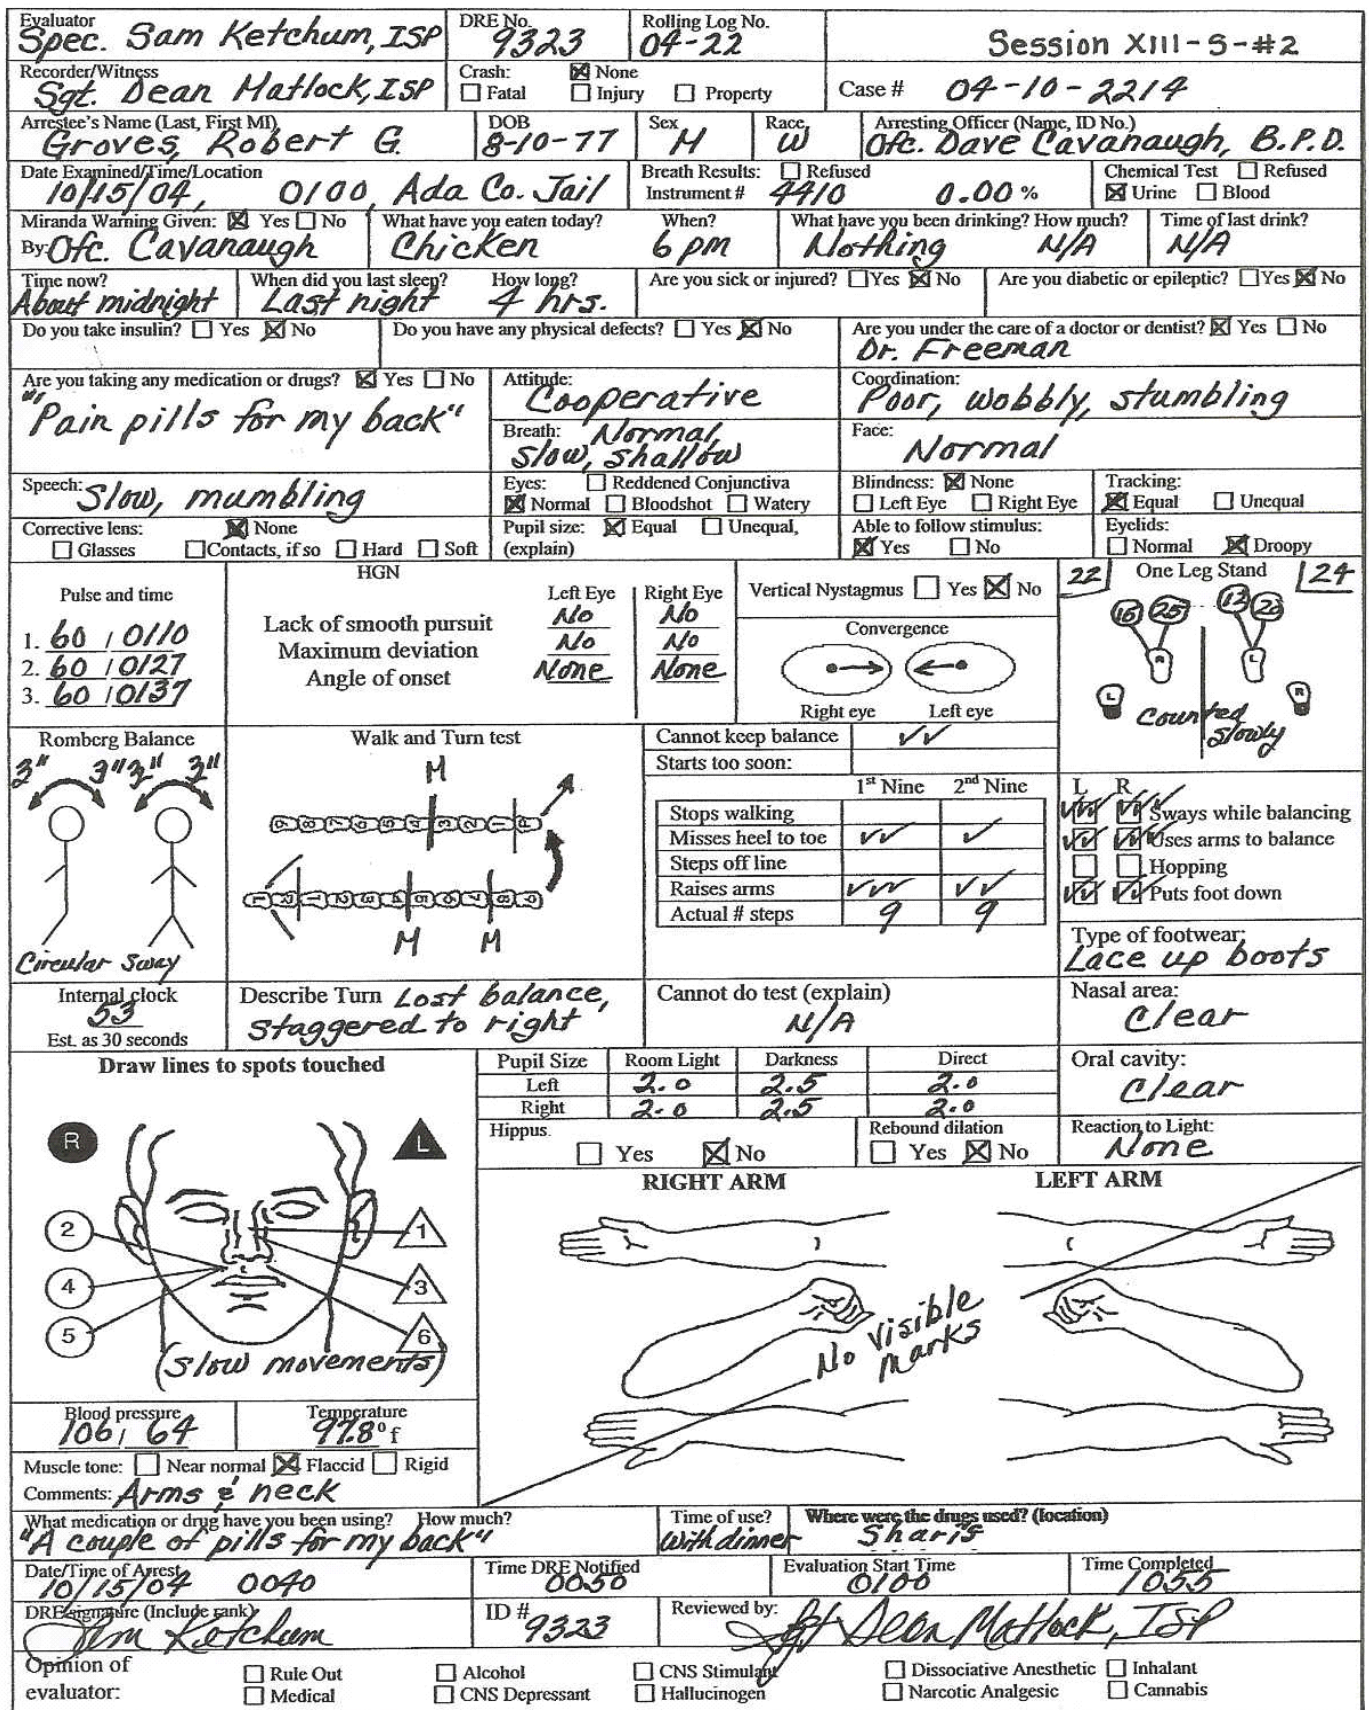 Evaluator
Spec. Sam Ketchum, ISP
DRE No.
9323
Rolling Log No.
04-22
Session XIII-S-#2
Recorder/Witness
Sgt. Dean Matlock, ISP
Crash: None
Fatal Injury Property
Case # 04-10-2214
Arrestee's Name (Last, First MI)
Groves, Robert G.
DOB
8-10-77
Sex
M
Race
W
Arresting Officer (Name, ID No.)
Ofc. Dave Cavanaugh, B.P.D.
Date Examined/Time/Location
10/15/04, 0100, Ada Co. Jail
Breath Results: Refused
Instrument # 4410 0.00 %
Chemical Test Refused
Urine Blood
Miranda Warning Given: Yes No
By: Ofc. Cavanaugh
What have you eaten today? When?
Chicken 6 pm
What have you been drinking? How much?
Nothing N/A
Time of last drink?
N/A
Time now?
About midnight
When did you last sleep? How long?
Last night 4 hrs.
Are you sick or injured? Yes No
Are you diabetic or epileptic? Yes No
Do you take insulin? Yes No
Do you have any physical defects? Yes No
Are you under the care of a doctor or dentist? Yes No
Dr. Freeman
Are you taking any medication or drugs? Yes No
"Pain pills for my back"
Attitude:
Cooperative
Coordination:
Poor, wobbly, stumbling
Breath: Normal,
slow, shallow
Face:
Normal
Speech: Slow, mumbling
Eyes: Reddened Conjunctiva
Normal Bloodshot Watery
Blindness: None
Left Eye Right Eye
Tracking:
Equal Unequal
Corrective lens: None
Glasses Contacts, if so Hard Soft
Pupil size: Equal Unequal,
(explain)
Able to follow stimulus:
Yes No
Eyelids:
Normal Droopy
Pulse and time
1. 60 / 0110
2. 60 / 0127
3. 60 / 0137
HGN
Left Eye Right Eye
Lack of smooth pursuit No No
Maximum deviation No No
Angle of onset None None
Vertical Nystagmus Yes No
Convergence
Right eye Left eye
22 One Leg Stand 24
16 25 12 20
R L
L R
Counted
slowly
Romberg Balance
3" 3" 3" 3"
Circular Sway
Walk and Turn test
M
M M
Cannot keep balance
Starts too soon:
1st Nine 2nd Nine
Stops walking
Misses heel to toe
Steps off line
Raises arms
Actual # steps 9 9
L R
Sways while balancing
Uses arms to balance
Hopping
Puts foot down
Type of footwear:
Lace up boots
Internal clock
53
Est. as 30 seconds
Describe Turn Lost balance,
staggered to right
Cannot do test (explain)
N/A
Nasal area:
Clear
Draw lines to spots touched
R L
2 1
4 3
5 6
(Slow movements)
Pupil Size Room Light Darkness Direct
Left 2.0 2.5 2.0
Right 2.0 2.5 2.0
Oral cavity:
Clear
Hippus.
Yes No
Rebound dilation
Yes No
Reaction to Light:
None
RIGHT ARM LEFT ARM
No visible
marks
Blood pressure
106 / 64
Temperature
97.8° f
Muscle tone: Near normal Flaccid Rigid
Comments: Arms & neck
What medication or drug have you been using? How much?
"A couple of pills for my back"
Time of use?
With dinner
Where were the drugs used? (location)
Shari's
Date/Time of Arrest
10/15/04 0040
Time DRE Notified
0050
Evaluation Start Time
0100
Time Completed
1055
DRE signature (Include rank)
Sam Ketchum
ID #
9323
Reviewed by:
Sgt Dean Matlock, ISP
Opinion of
evaluator:
Rule Out Alcohol CNS Stimulant Dissociative Anesthetic Inhalant
Medical CNS Depressant Hallucinogen Narcotic Analgesic Cannabis